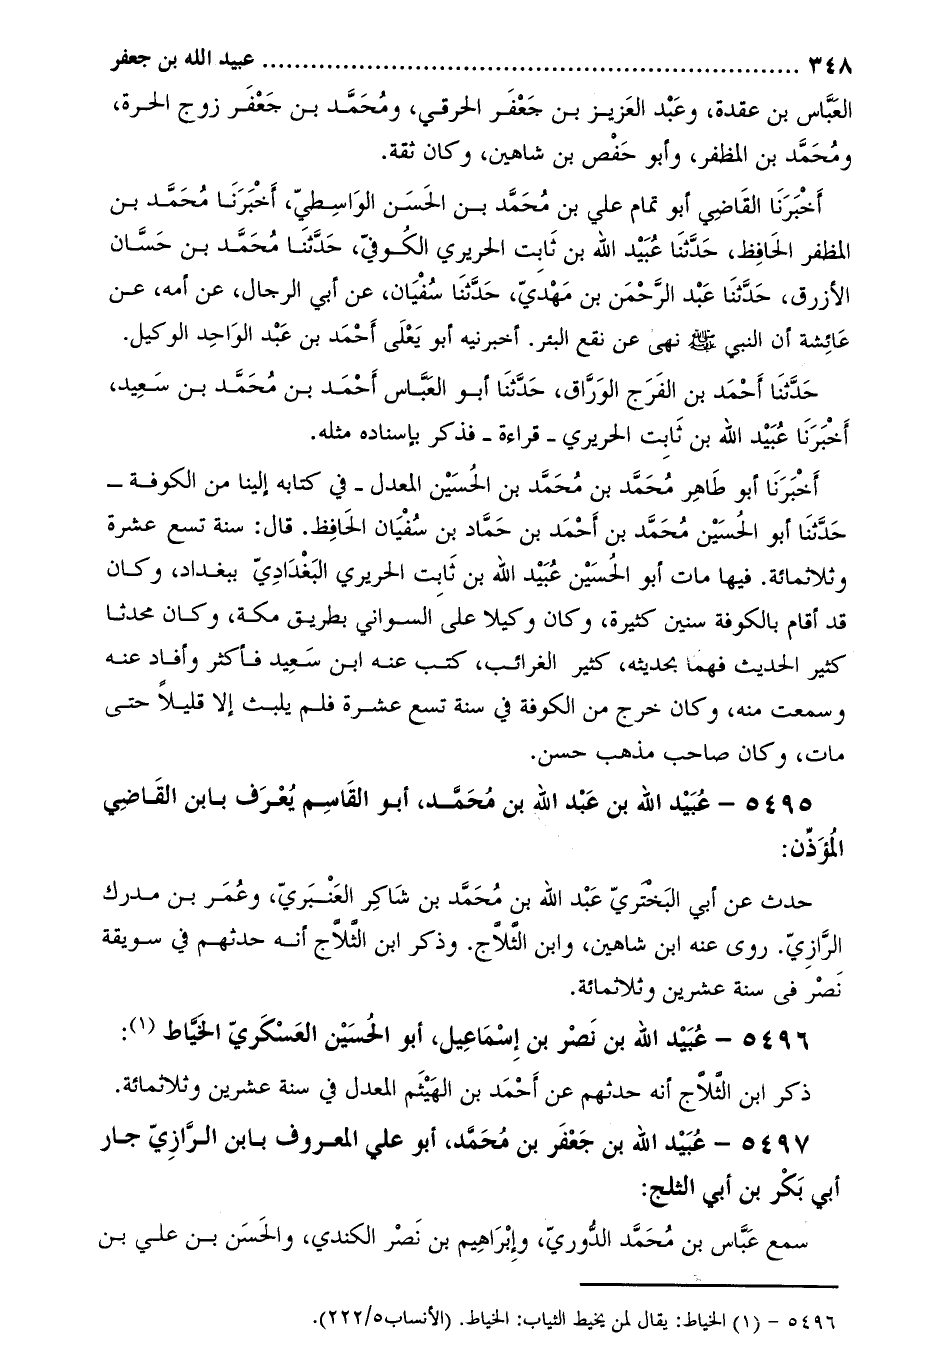 ٣٤٨ .................................................................. عبيد الله بن جعفر
العَبَّاس بن عقدة، وعَبْد العَزيز بن جَعْفَر الحرقي، ومُحَمَّد بن جَعْفَر زوج الحرة،
ومُحَمَّد بن المظفر، وأبو حَفْص بن شاهين، وكان ثقة.
أَخْبَرَنَا القَاضِي أبو تمام علي بن مُحَمَّد بن الحَسَن الوَاسِطيّ، أَخْبَرَنَا مُحَمَّد بن
المظفر الحَافِظ، حَدَّثَنَا عُبَيْد الله بن ثَابِت الحريري الكُوفيّ، حَدَّثَنَا مُحَمَّد بن حَسَّان
الأزرق، حَدَّثَنَا عَبْد الرَّحْمَن بن مَهْديّ، حَدَّثَنَا سُفْيَان، عن أبي الرجال، عن أمه، عن
عَائِشة أن النبي ﷺ نهى عن نقع البئر. أخبرنيه أبو يَعْلَى أَحْمَد بن عَبْد الوَاحِد الوكيل.
حَدَّثَنَا أَحْمَد بن الفَرَج الوَرَّاق، حَدَّثَنَا أبو العَبَّاس أَحْمَد بن مُحَمَّد بن سَعِيد،
أَخْبَرَنَا عُبَيْد الله بن ثَابِت الحريري ـ قراءة ـ فذكر بإسناده مثله.
أَخْبَرَنَا أبو طَاهِر مُحَمَّد بن مُحَمَّد بن الحُسَيْن المعدل ـ في كتابه إلينا من الكوفة ـ
حَدَّثَنَا أبو الحُسَيْن مُحَمَّد بن أَحْمَد بن حَمَّاد بن سُفْيَان الحَافِظ. قال: سنة تسع عشرة
وثلاثمائة. فيها مات أبو الحُسَيْن عُبَيْد الله بن ثَابِت الحريري البَغْدَاديّ ببغداد، وكان
قد أقام بالكوفة سنين كثيرة، وكان وكيلا على السواني بطريق مكة، وكان محدثا
كثير الحديث فهما بحديثه، كثير الغرائب، كتب عنه ابن سَعِيد فأكثر وأفاد عنه
وسمعت منه، وكان خرج من الكوفة في سنة تسع عشرة فلم يلبث إلا قليلاً حتى
مات، وكان صاحب مذهب حسن.
٥٤٩٥ – عُبَيْد الله بن عَبْد الله بن مُحَمَّد، أبو القَاسِم يُعْرَف بابن القَاضِي
المُؤَذّن:
حدث عن أبي البَخْتَريّ عَبْد الله بن مُحَمَّد بن شَاكِر العَنْبَريّ، وعُمَر بن مدرك
الرَّازِيّ. روى عنه ابن شاهين، وابن الثَّلاَّج. وذكر ابن الثَّلاَّج أنه حدثهم في سويقة
نَصْر فى سنة عشرين وثلاثمائة.
٥٤٩٦ – عُبَيْد الله بن نَصْر بن إِسْمَاعِيل، أبو الحُسَيْن العَسْكَريّ الخَيَّاط (١):
ذكر ابن الثَّلاَّج أنه حدثهم عن أَحْمَد بن الهَيْثَم المعدل في سنة عشرين وثلاثمائة.
٥٤٩٧ – عُبَيْد الله بن جَعْفَر بن مُحَمَّد، أبو علي المعروف بابن الرَّازِيّ جار
أبي بَكْر بن أبي الثلج:
سمع عَبَّاس بن مُحَمَّد الدُّوريّ، وإِبْرَاهِيم بن نَصْر الكندي، والحَسَن بن علي بن
٥٤٩٦ – (١) الخياط: يقال لمن يخيط الثياب: الخياط. (الأنساب٢٢٢/٥).